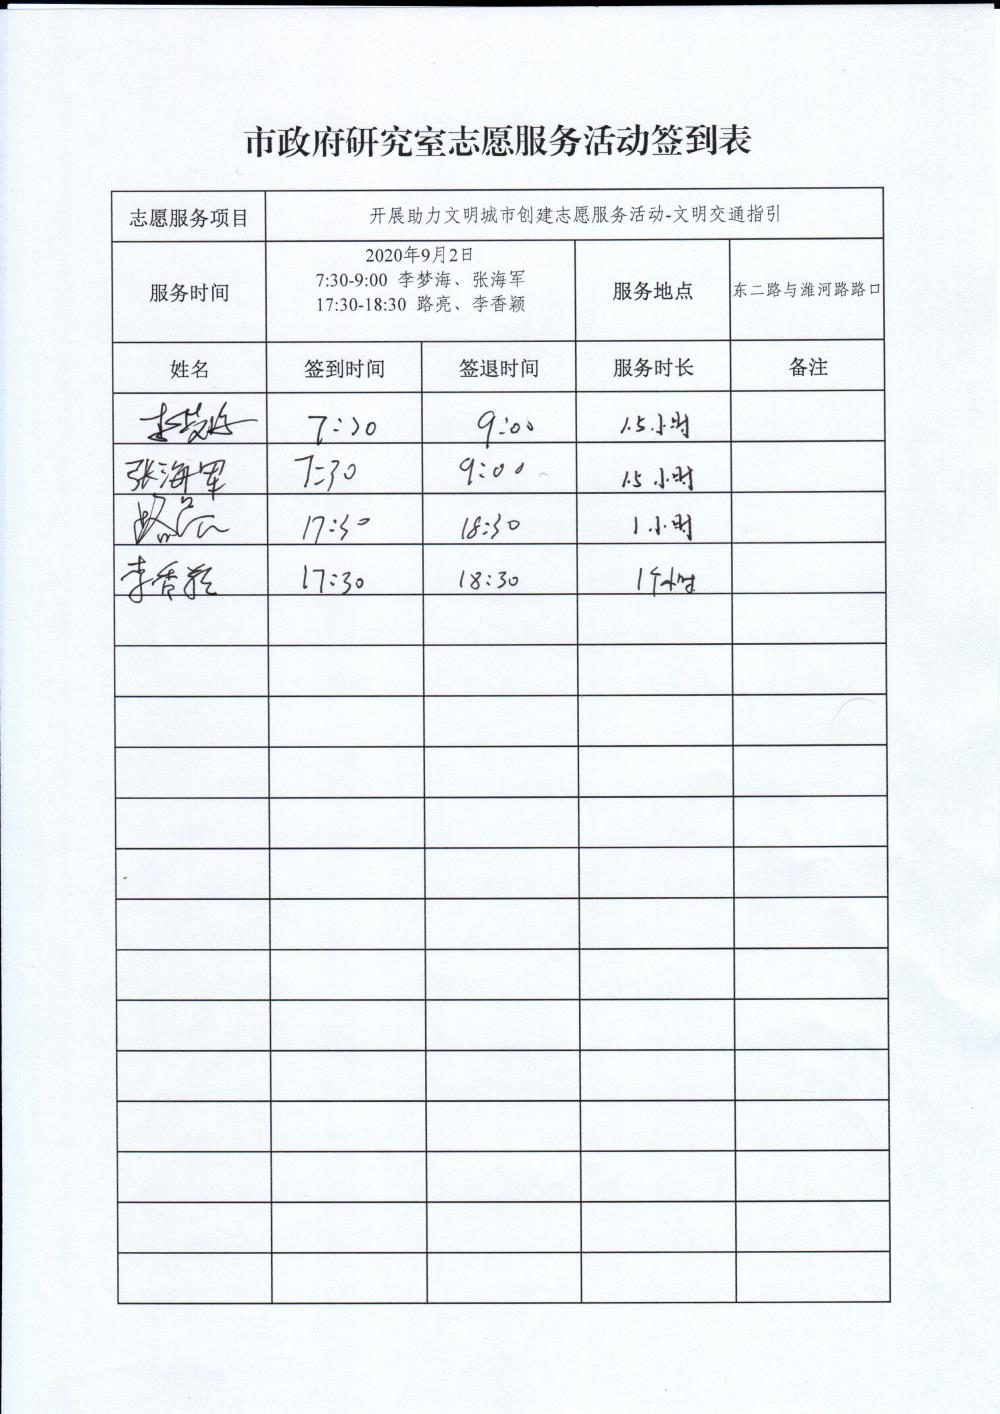 市政府研究室志愿服务活动签到表
志愿服务项目 开展助力文明城市创建志愿服务活动-文明交通指引
服务时间 2020年9月2日
7:30-9:00 李梦海、张海军
17:30-18:30 路亮、李香颖
服务地点 东二路与潍河路路口
姓名 签到时间 签退时间 服务时长 备注
李梦海 7:30 9:00 1.5小时
张海军 7:30 9:00 1.5小时
路亮 17:30 18:30 1小时
李香颖 17:30 18:30 1个小时